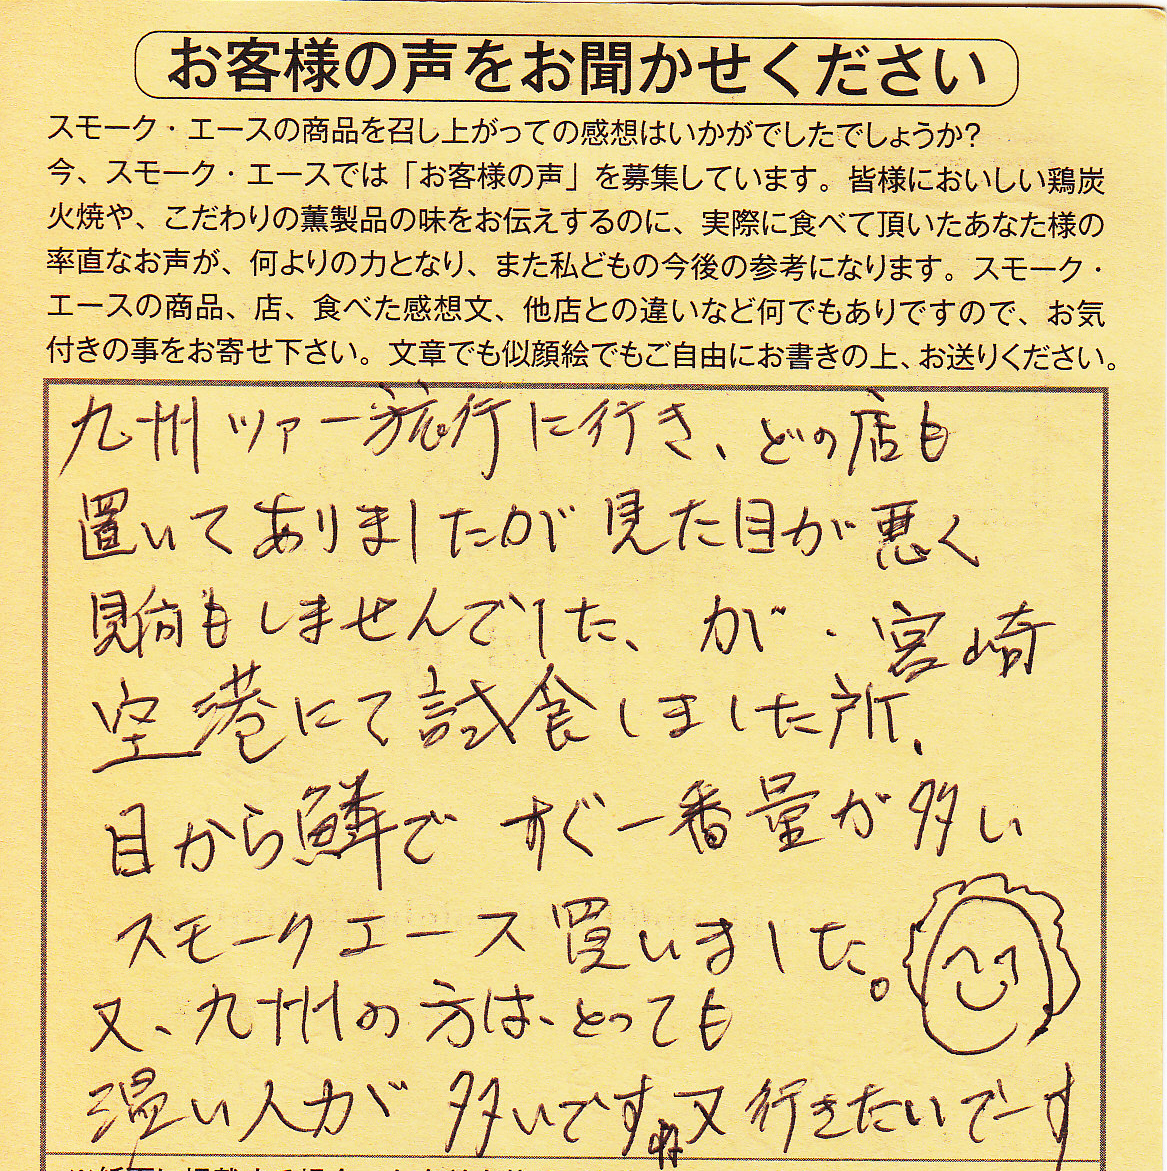 お客様の声をお聞かせください
スモーク・エースの商品を召し上がっての感想はいかがでしたでしょうか?
今、スモーク・エースでは「お客様の声」を募集しています。皆様においしい鶏炭
火焼や、こだわりの薫製品の味をお伝えするのに、実際に食べて頂いたあなた様の
率直なお声が、何よりの力となり、また私どもの今後の参考になります。スモーク・
エースの商品、店、食べた感想文、他店との違いなど何でもありですので、お気
付きの事をお寄せ下さい。文章でも似顔絵でもご自由にお書きの上、お送りください。
九州ツァー旅行に行き、どの店も
置いてありましたが見た目が悪く
見向もしませんでした、が・宮崎
空港にて試食しました所、
目から鱗で すぐ一番量が多い
スモークエース買いました。
又、九州の方は、とっても
温い人が多いですね又行きたいでーす